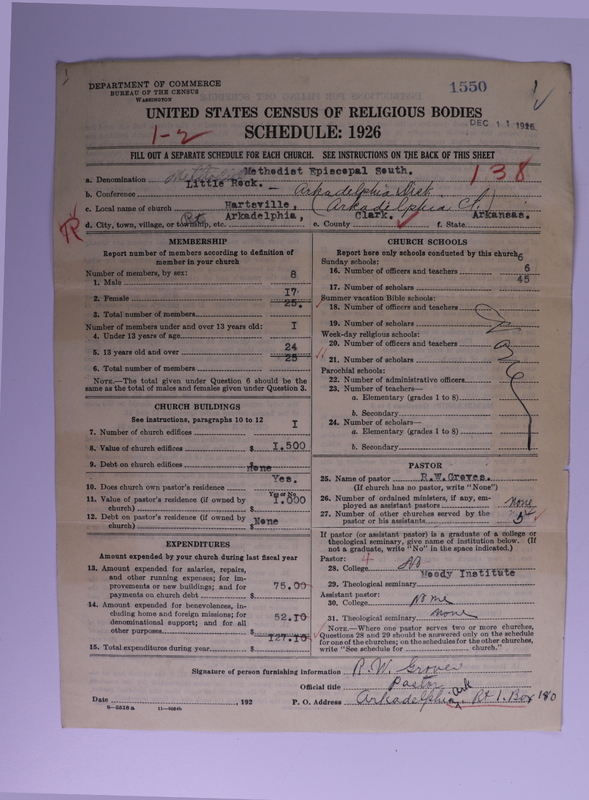 DEPARTMENT OF COMMERCE
BUREAU OF THE CENSUS
WASHINGTON
1550
UNITED STATES CENSUS OF RELIGIOUS BODIES
DEC 11 1926
SCHEDULE: 1926
1-2
FILL OUT A SEPARATE SCHEDULE FOR EACH CHURCH. SEE INSTRUCTIONS ON THE BACK OF THIS SHEET
138
a. Denomination Methodist Episcopal South.
b. Conference Little Rock. — Arkadelphia Dist
c. Local name of church Hartsville, (Arkadelphia Ct.)
R
d. City, town, village, or township, etc. Rt. Arkadelphia, e. County Clark. f. State Arkansas.
MEMBERSHIP
Report number of members according to definition of member in your church
Number of members, by sex:
1. Male 8
2. Female 17
3. Total number of members 25.
Number of members under and over 13 years old:
4. Under 13 years of age I
5. 13 years old and over 24
6. Total number of members 25
NOTE.—The total given under Question 6 should be the same as the total of males and females given under Question 3.
CHURCH BUILDINGS
See instructions, paragraphs 10 to 12
7. Number of church edifices I
8. Value of church edifices $ I.500
9. Debt on church edifices None
10. Does church own pastor's residence Yes.
Yes or No
11. Value of pastor's residence (if owned by church) $ I.000
12. Debt on pastor's residence (if owned by church) $ None
EXPENDITURES
Amount expended by your church during last fiscal year
13. Amount expended for salaries, repairs, and other running expenses; for improvements or new buildings; and for payments on church debt $ 75.00
14. Amount expended for benevolences, including home and foreign missions; for denominational support; and for all other purposes $ 52.10
15. Total expenditures during year $ 127.10
CHURCH SCHOOLS
Report here only schools conducted by this church
Sunday schools: 6
16. Number of officers and teachers 6
17. Number of scholars 45
Summer vacation Bible schools:
18. Number of officers and teachers
19. Number of scholars
Week-day religious schools:
20. Number of officers and teachers
21. Number of scholars
Parochial schools:
22. Number of administrative officers
23. Number of teachers—
a. Elementary (grades 1 to 8)
b. Secondary
24. Number of scholars—
a. Elementary (grades 1 to 8)
b. Secondary
None
PASTOR
25. Name of pastor R.W. Groves.
(If church has no pastor, write "None")
26. Number of ordained ministers, if any, employed as assistant pastors None
27. Number of other churches served by the pastor or his assistants 5
If pastor (or assistant pastor) is a graduate of a college or theological seminary, give name of institution below. (If not a graduate, write "No" in the space indicated.)
Pastor: 4
28. College No
29. Theological seminary Moody Institute
Assistant pastor:
30. College None
31. Theological seminary None
NOTE.—Where one pastor serves two or more churches, Questions 28 and 29 should be answered only on the schedule for one of the churches; on the schedules for the other churches, write "See schedule for church."
Signature of person furnishing information R.W. Groves
Official title Pastor
Date , 192
P. O. Address Arkadelphia, Ark Rt 1. Box 180
8-5518 a